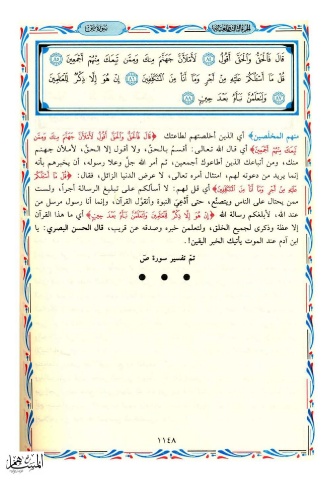 الجزء الثالث والعشرون
سورة ص
قَالَ فَالْحَقُّ وَالْحَقَّ أَقُولُ ﴿٨٤﴾ لَأَمْلَأَنَّ جَهَنَّمَ مِنكَ وَمِمَّن تَبِعَكَ مِنْهُمْ أَجْمَعِينَ ﴿٨٥﴾
قُلْ مَا أَسْأَلُكُمْ عَلَيْهِ مِنْ أَجْرٍ وَمَا أَنَا مِنَ الْمُتَكَلِّفِينَ ﴿٨٦﴾ إِنْ هُوَ إِلَّا ذِكْرٌ لِّلْعَالَمِينَ
﴿٨٧﴾ وَلَتَعْلَمُنَّ نَبَأَهُ بَعْدَ حِينٍ ﴿٨٨﴾
منهم المخلَصين﴾ أي الذين أخلصتهم لطاعتك ﴿قَالَ فَالْحَقُّ وَالْحَقَّ أَقُولُ لَأَمْلَأَنَّ جَهَنَّمَ مِنكَ وَمِمَّن
تَبِعَكَ مِنْهُمْ أَجْمَعِينَ﴾ أي قال الله تعالى: أقسمُ بالحقِّ، ولا أقول إلا الحقَّ، لأملأن جهنم
منك، ومن أتباعك الذين أطاعوك أجمعين، ثم أمر الله جلَّ وعلا رسوله، أن يخبرهم بأنه
إنما يريد من دعوته لهم، امتثال أمره تعالى، لا عرض الدنيا الزائل، فقال: ﴿قُلْ مَا أَسْأَلُكُمْ
عَلَيْهِ مِنْ أَجْرٍ وَمَا أَنَا مِنَ الْمُتَكَلِّفِينَ﴾ أي قل لهم: لا أسألكم على تبليغ الرسالة أجراً، ولست
ممن يحتال على الناس ويتصنَّع، حتى أدَّعيَ النبوة وأتقوَّل القرآن، وإنما أنا رسول مرسل من
عند الله، لأبلغكم رسالة الله ﴿إِنْ هُوَ إِلَّا ذِكْرٌ لِّلْعَالَمِينَ وَلَتَعْلَمُنَّ نَبَأَهُ بَعْدَ حِينٍ﴾ أي ما هذا القرآن
إلا عظة وذكرى لجميع الخلق، ولتعلمن خبره وصدقه عن قريب، قال الحسن البصري: يا
ابن آدم عند الموت يأتيك الخبر اليقين!.
تمّ تفسير سورة صٓ
١١٤٨